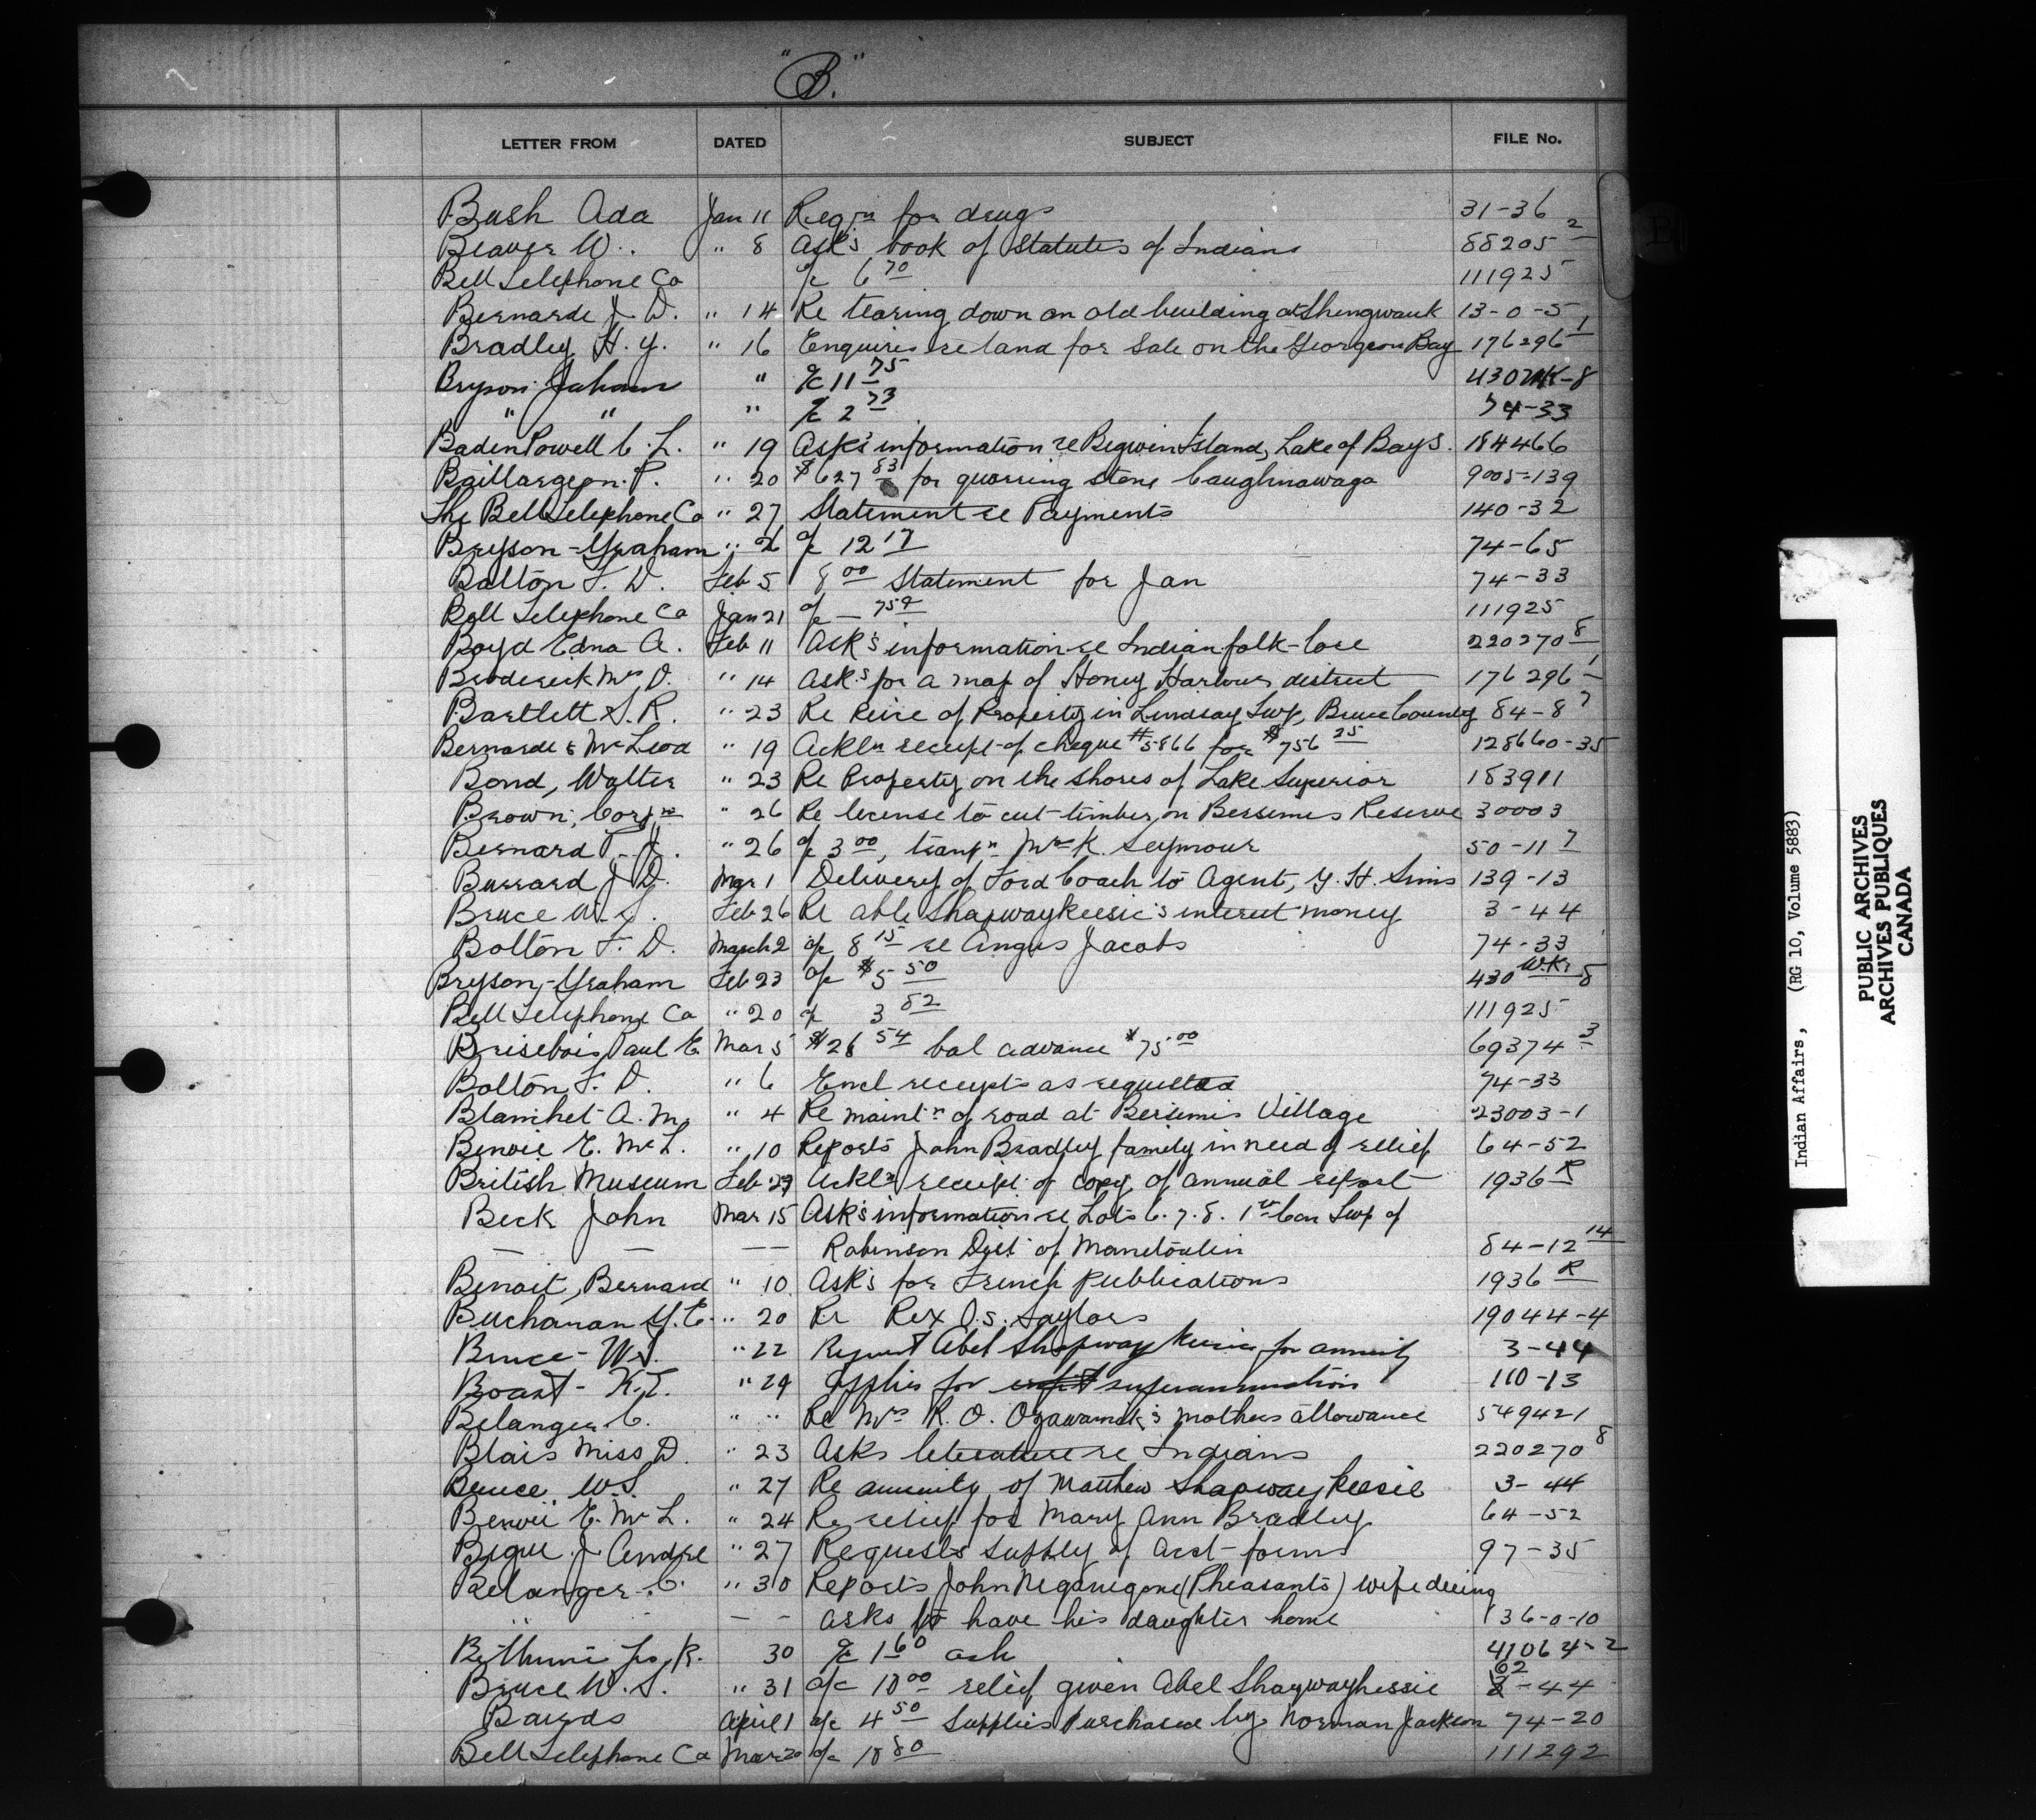 "B."
LETTER FROM DATED SUBJECT FILE No.
Bush Ada Jan 11 Reqn for drugs 31-36
Beaver W. " 8 Asks book of Statutes of Indians 88205 2
Bell Telephone Co a/c 6 70 111925
Bernarde J. D. " 14 Re tearing down an old building at Shingwauk 13-0-5
Bradley H. Y. " 16 Enquires re land for sale on the Georgian Bay 176296 1
Bryson Graham " a/c 11 75 430 -8
" " " a/c 2 73 74-33
Baden Powell C. L. " 19 Asks information re Bigwin Island, Lake of Bays. 184466
Baillargeon. P. " 20 $627 83 for quarring stone Caughnawaga 9005-139
The Bell Telephone Co " 27 Statement re Payments 140-32
Bryson-Graham " 26 a/c 12 17 74-65
Bolton F. D. Feb 5 8 00 Statement for Jan 74-33
Bell Telephone Co Jan 21 a/c — 75¢ 111925
Boyd Edna A. Feb 11 Ask's information re Indian folk-lore 220270 8
Broderick Mrs D. " 14 Asks for a map of Honey Harbour district 176296 1
Bartlett S. R. " 23 Re Piece of Property in Lindsay Twp, Bruce County 84-8 7
Bernarde & McLeod " 19 Ackln receipt of cheque #5866 for $756 25 128660-35
Bond, Walter " 23 Re Property on the shores of Lake Superior 183911
Brown, Corpn " 26 Re license to cut timber on Bersemis Reserve 30003
Bernard T. J. " 26 a/c 3 00, transpn Mrs K. Seymour 50-11 7
Burrard J. D. Mar 1 Delivery of Ford Coach to Agent, Y. H. Sims 139-13
Bruce W. S. Feb 26 Re Able Shapwaykeesic's interest money 3-44
Bolton F. D. March 2 a/c 8 15 re Angus Jacobs 74-33
Bryson-Graham Feb 23 a/c $5 50 430 W.Ks 8
Bell Telephone Co " 20 a/c 3 82 111925
Brisebois Paul E. Mar 5 $26 54 bal advance $75 00 69374 3
Bolton F. D. " 6 Encl receipts as requested 74-33
Blanchet A. M. " 4 Re maintn of road at Bersimis Village 23003-1
Benoie E. McL. " 10 Reports John Bradley family in need of relief 64-52
British Museum Feb 29 Ackln receipt of copy of annual report 1936 R
Beck John Mar 15 Ask's information re Lots 6. 7. 8. 1st Con Twp of
— — — — Robinson Dist of Manitoulin 84-12 14
Benoit, Bernard " 10 Ask's for French Publications 1936 R
Buchanan Y. E. " 20 Re Rex O.S. Saylors 19044-4
Bruce W.S. " 22 Request Abel Shapwaykeesic for annuity 3-44
Boast - K.T. " 29 Applies for superannuation 110-13
Belanger C. " " Re Mrs R. O. Ogawamek's mothers allowance 549421
Blais Miss D. " 23 Asks literature re Indians 220270 8
Bruce W.S. " 27 Re annuity of Matthew Shapwaykeesic 3-44
Benoie E. McL. " 24 Re relief for Mary Ann Bradley 64-52
Bigue J. Andre " 27 Requests supply of acct-forms 97-35
Belanger C. " 30 Reports John Neganegone (Pheasants) wife dieing
" — — asks to have his daughter home 136-0-10
Bethune Jos. R. 30 a/c 1 60 ash 41064-2
Bruce W. S. " 31 a/c 10 00 relief given Abel Shaywaykessic 62-44
Bairds April 1 a/c 4 50 Supplies Purchased by Norman Jackson 74-20
Bell Telephone Co Mar 20 a/c 18 80 111292
Indian Affairs, (RG 10, Volume 5883)
PUBLIC ARCHIVES
ARCHIVES PUBLIQUES
CANADA